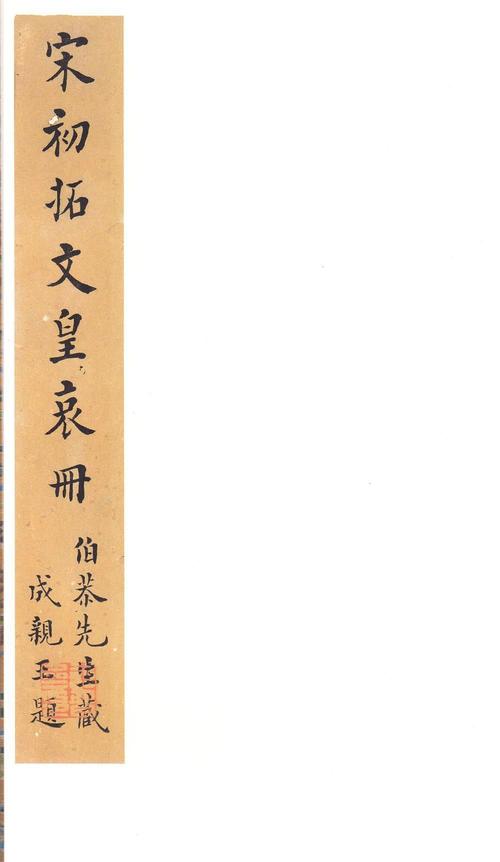 宋初拓文皇哀冊
伯恭先生藏
成親王題